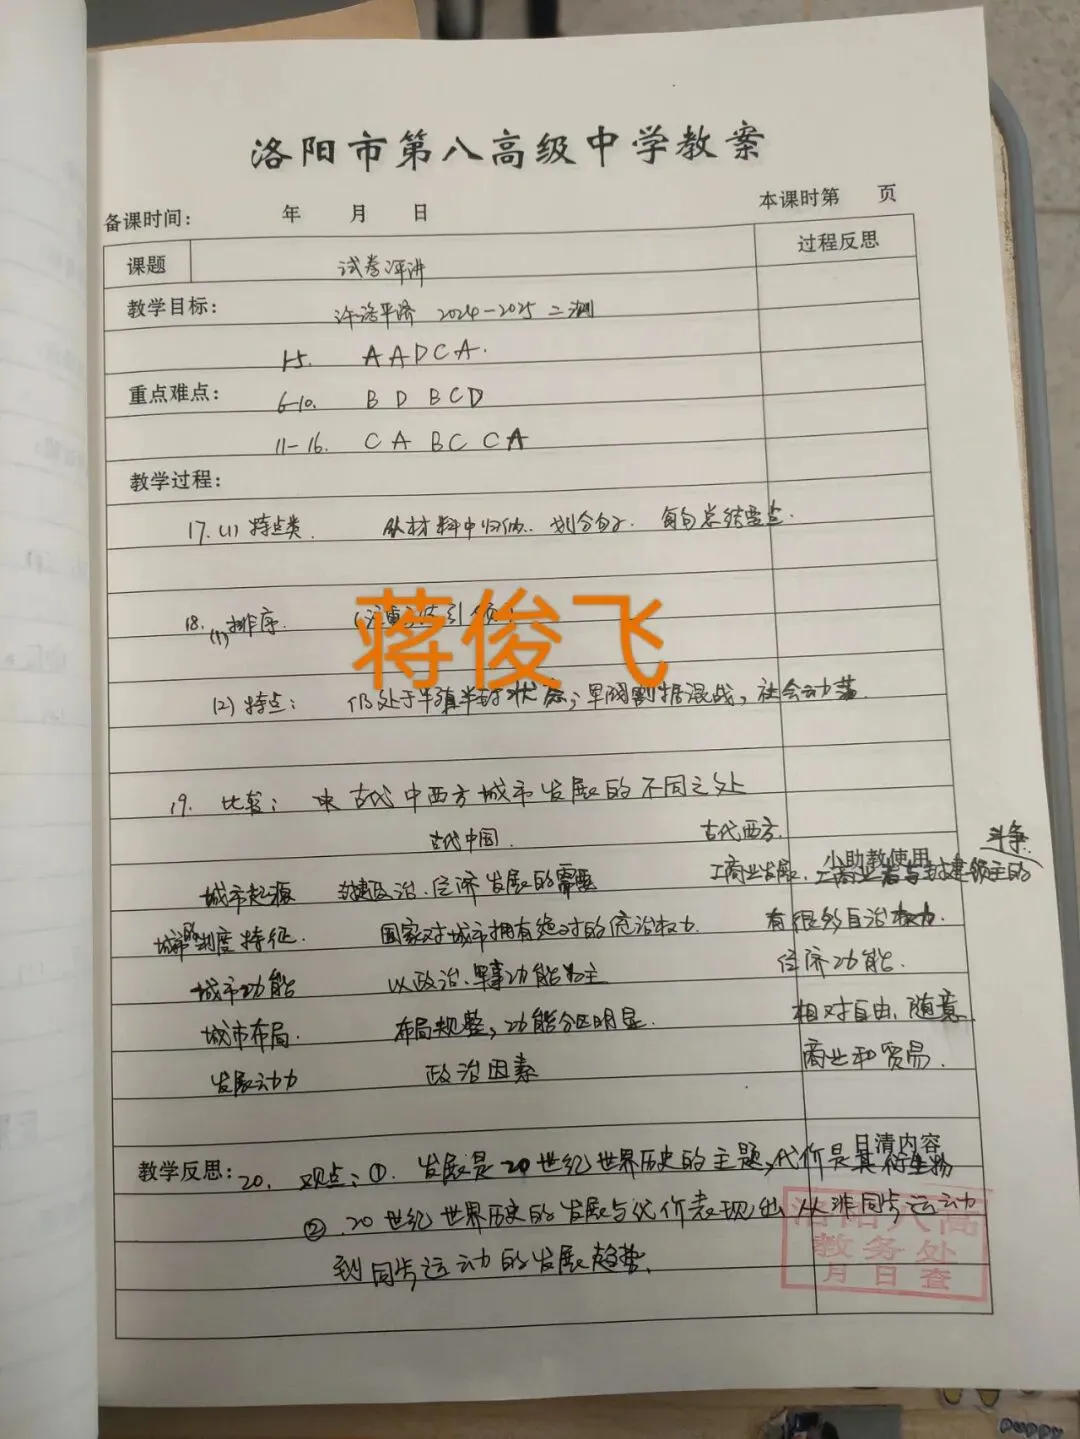 洛阳市第八高级中学教案
备课时间: 年 月 日 本课时第 页
课题 试卷评讲 过程反思
教学目标: 许洛平济 2024-2025 二测
1-5. A A D C A.
重点难点: 6-10. B D B C D
11-16. C A B C C A
教学过程:
17. (1) 特点类 从材料中归纳. 划分句子. 每句总结要点.
18. (1) 排序. (注重 引领)
蒋俊飞
(2) 特点: 仍处于半殖半封状态; 军阀割据混战, 社会动荡.
19. 比较: 古代中西方城市发展的不同之处
古代中国. 古代西方.
小助教使用
斗争.
城市起源 封建政治、经济发展的需要 工商业发展. 工商业者与封建领主的
城市制度特征. 国家对城市拥有绝对的统治权力 有很多自治权力.
城市功能 以政治、军事功能为主 经济功能.
城市布局. 布局规整, 功能分区明显. 相对自由、随意.
发展动力 政治因素 商业和贸易.
日清内容
教学反思: 20. 观点: ①. 发展是20世纪世界历史的主题, 代价是其衍生物
②. 20世纪世界历史的发展与代价表现出从非同步运动
到同步运动的发展趋势.
洛阳八高
教务处
月 日查
puppy